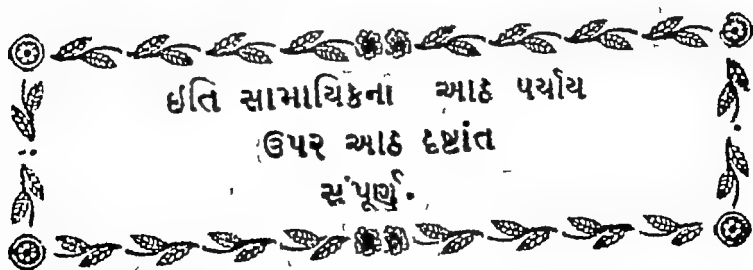 ઇતિ સામાયિકના આઠ પર્યાય
ઉપર આઠ દષ્ટાંત
સંપૂર્ણ.